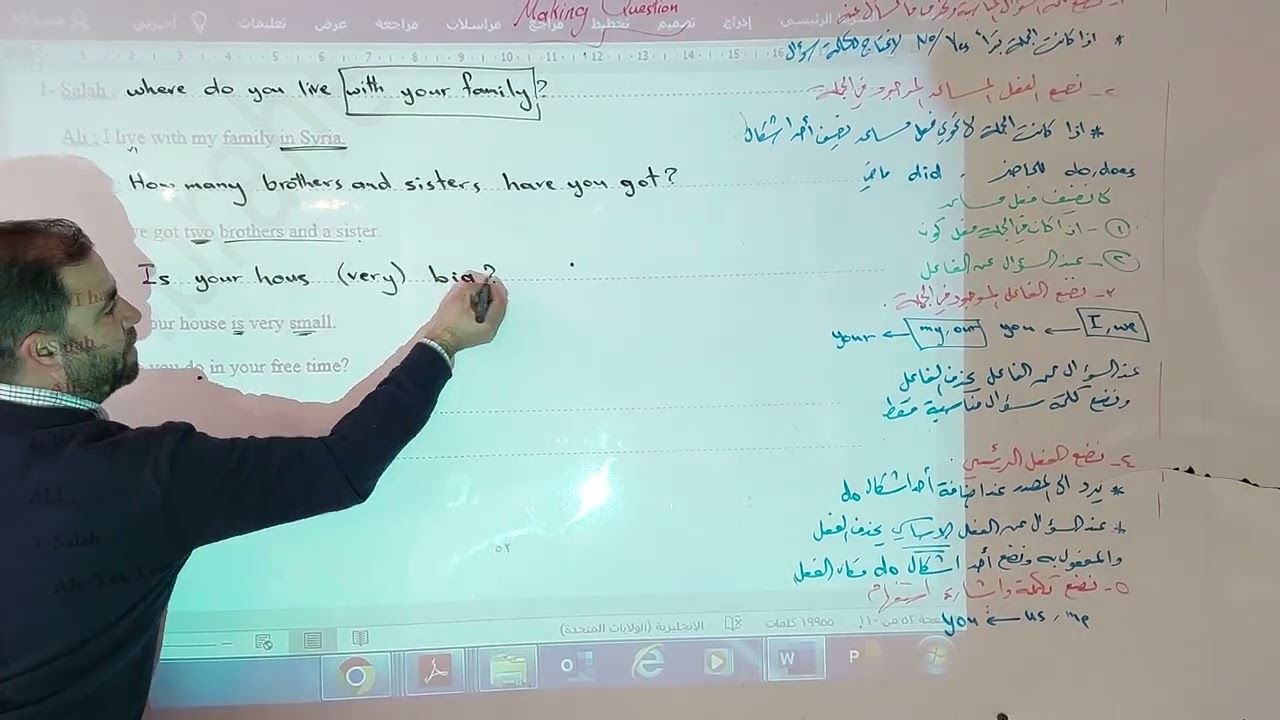 Making Question
إدراج تصميم تخطيط مراجع مراسلات مراجعة عرض تعليمات أخبرني
2 3 4 5 6 7 8 9 10 11 12 13 14 15 16
1- Salah where do you live with your family?
Ali : I live with my family in Syria.
How many brothers and sisters have you got?
ve got two brothers and a sister.
Is your hous (very) big?
our house is very small.
you do in your free time?
ALI
Salah
* اذا كانت الجملة تبدأ No/Yes لا نحتاج لكلمة سؤال
٢- نضع الفعل المساعد الموجود في الجملة
* اذا كانت الجملة لا تحوي فعل مساعد نضيف أحد اشكال
do, does للحاضر , did ماضي
١- اذا كان في الجملة فعل كون
٢- عند السؤال عن الفاعل
٣- نضع الفاعل الموجود في الجملة.
I, we ← you my, our ← your
عند السؤال عن الفاعل يحذف الفاعل
ونضع كلمة سؤال مناسبة فقط
٤- نضع الفعل الرئيسي
* يرد الى المصدر عند اضافة أحد اشكال do
* عند السؤال عن الفعل الاساسي يحذف الفعل
والمفعول به ونضع أحد اشكال do مكان الفعل
٥- نضع تكملة واشارة استفهام
us, me ← you
٥٢
١٩٩٥٥ كلمات الإنجليزية (الولايات المتحدة)